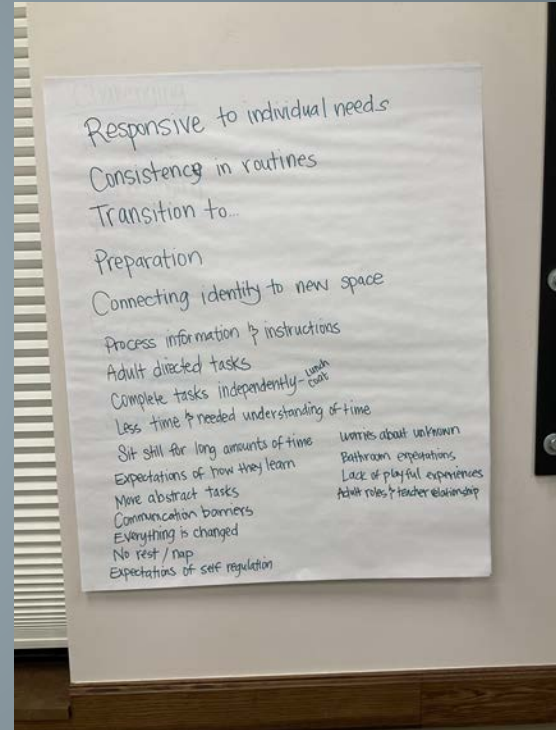 Responsive to individual needs
Consistency in routines
Transition to...
Preparation
Connecting identity to new space
Process information & instructions
Adult directed tasks
Complete tasks independently - lunch coat
Less time & needed understanding of time
Sit still for long amounts of time
Expectations of how they learn
More abstract tasks
Communication barriers
Everything is changed
No rest / nap
Expectations of self regulation
worries about unknown
Bathroom expectations
Lack of playful experiences
Adult roles & teacher relationship